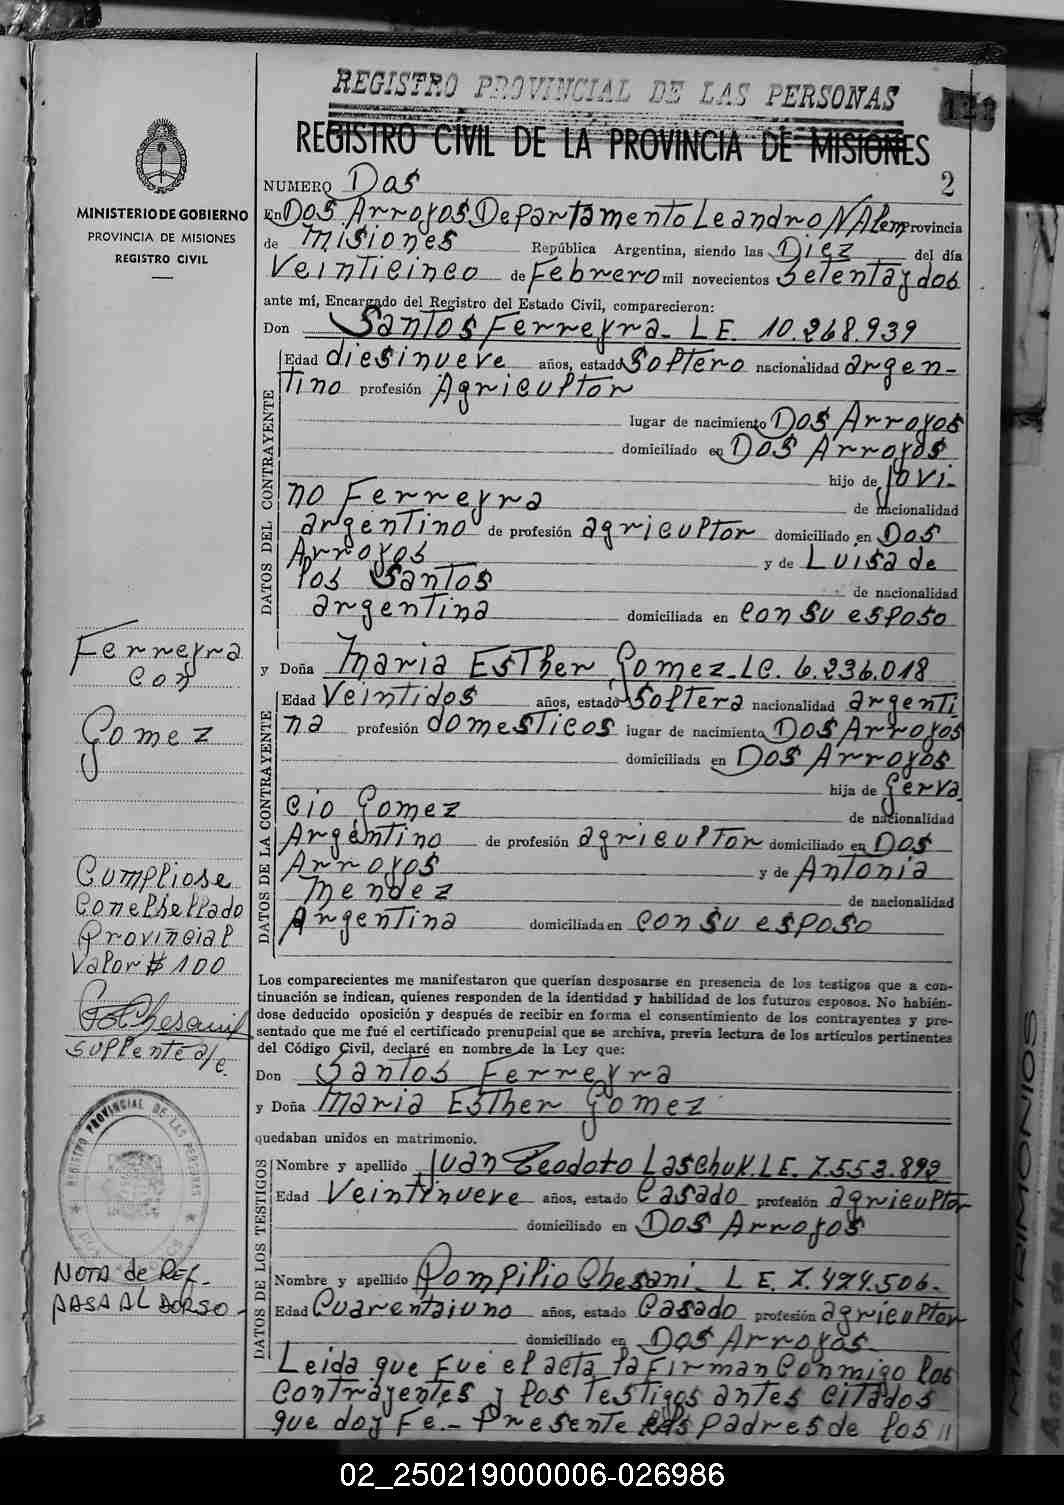 REGISTRO PROVINCIAL DE LAS PERSONAS
122
REGISTRO CIVIL DE LA PROVINCIA DE MISIONES
2
MINISTERIO DE GOBIERNO
PROVINCIA DE MISIONES
REGISTRO CIVIL
NUMERO Dos
En Dos Arroyos Departamento Leandro N Alem Provincia
de Misiones República Argentina, siendo las Diez del día
Veinticinco de Febrero mil novecientos Setenta y dos
ante mí, Encargado del Registro del Estado Civil, comparecieron:
Don Santos Ferreyra - L E. 10.268.939
DATOS DEL CONTRAYENTE
Edad diesinueve años, estado Soltero nacionalidad argen-
tino profesión Agricultor
lugar de nacimiento Dos Arroyos
domiciliado en Dos Arroyos
hijo de Jovi-
no Ferreyra de nacionalidad
argentino de profesión agricultor domiciliado en Dos
Arroyos y de Luisa de
los Santos de nacionalidad
argentina domiciliada en con su esposo
Ferreyra
con
Gomez
y Doña Maria Esther Gomez - LC. 6.236.018
DATOS DE LA CONTRAYENTE
Edad Veintidos años, estado Soltera nacionalidad argenti
na profesión domesticos lugar de nacimiento Dos Arroyos
domiciliada en Dos Arroyos
hija de Gerva
cio Gomez de nacionalidad
Argentino de profesión agricultor domiciliado en Dos
Arroyos y de Antonia
Mendez de nacionalidad
Argentina domiciliada en con su esposo
Cumpliose
Con el Sellado
Provincial
Valor $ 100
suplente a/c.
Los comparecientes me manifestaron que querían desposarse en presencia de los testigos que a con-
tinuación se indican, quienes responden de la identidad y habilidad de los futuros esposos. No habién-
dose deducido oposición y después de recibir en forma el consentimiento de los contrayentes y pre-
sentado que me fué el certificado prenupcial que se archiva, previa lectura de los artículos pertinentes
del Código Civil, declaré en nombre de la Ley que:
Don Santos Ferreyra
y Doña Maria Esther Gomez
quedaban unidos en matrimonio.
REGISTRO PROVINCIAL DE LAS PERSONAS
DATOS DE LOS TESTIGOS
Nombre y apellido Juan Teodoto Laschuk. L E. 7.553.892
Edad Veintinueve años, estado Casado profesión agricultor
domiciliado en Dos Arroyos
Nombre y apellido Pompilio Chesani - L E. 7.474.506.
Edad Cuarentaiuno años, estado Casado profesión agricultor
domiciliado en Dos Arroyos
NOTA de REF.
PASA AL DORSO -
Leida que fue el acta la firman conmigo los
contrayentes y los testigos antes citados
que doy Fe. - Presente los padres de los //
MATRIMONIOS
02_250219000006-026986